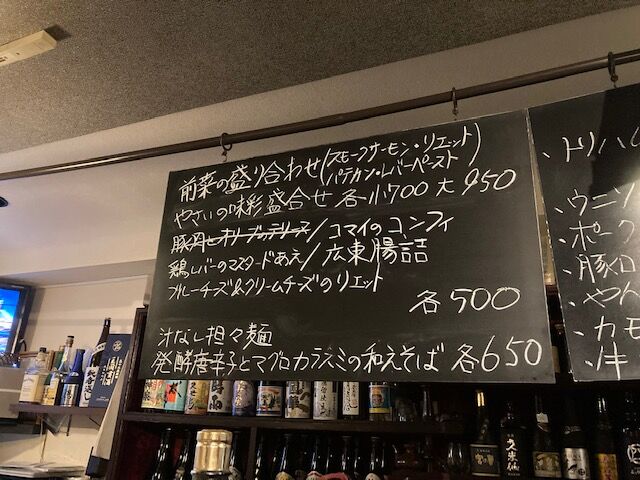 前菜の盛り合わせ(スモークサーモン・リエット
パテカン・レバーペースト)
やさいの味彩盛合せ 各小700 大950
豚肉とオリーブのテリーヌ/コマイのコンフィ
鶏レバーのマスタードあえ/広東腸詰
ブルーチーズ&クリームチーズのリエット
各500
汁なし担々麺
発酵唐辛子とマグロカラスミの和えそば 各650
、トリハ
、ウニソ
、ポーク
、豚ロ
、やん
、カモ